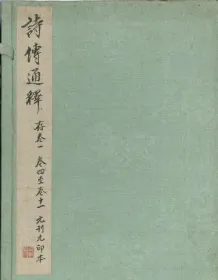 詩傳通釋 存卷一 卷四至卷十一 元刊元印本